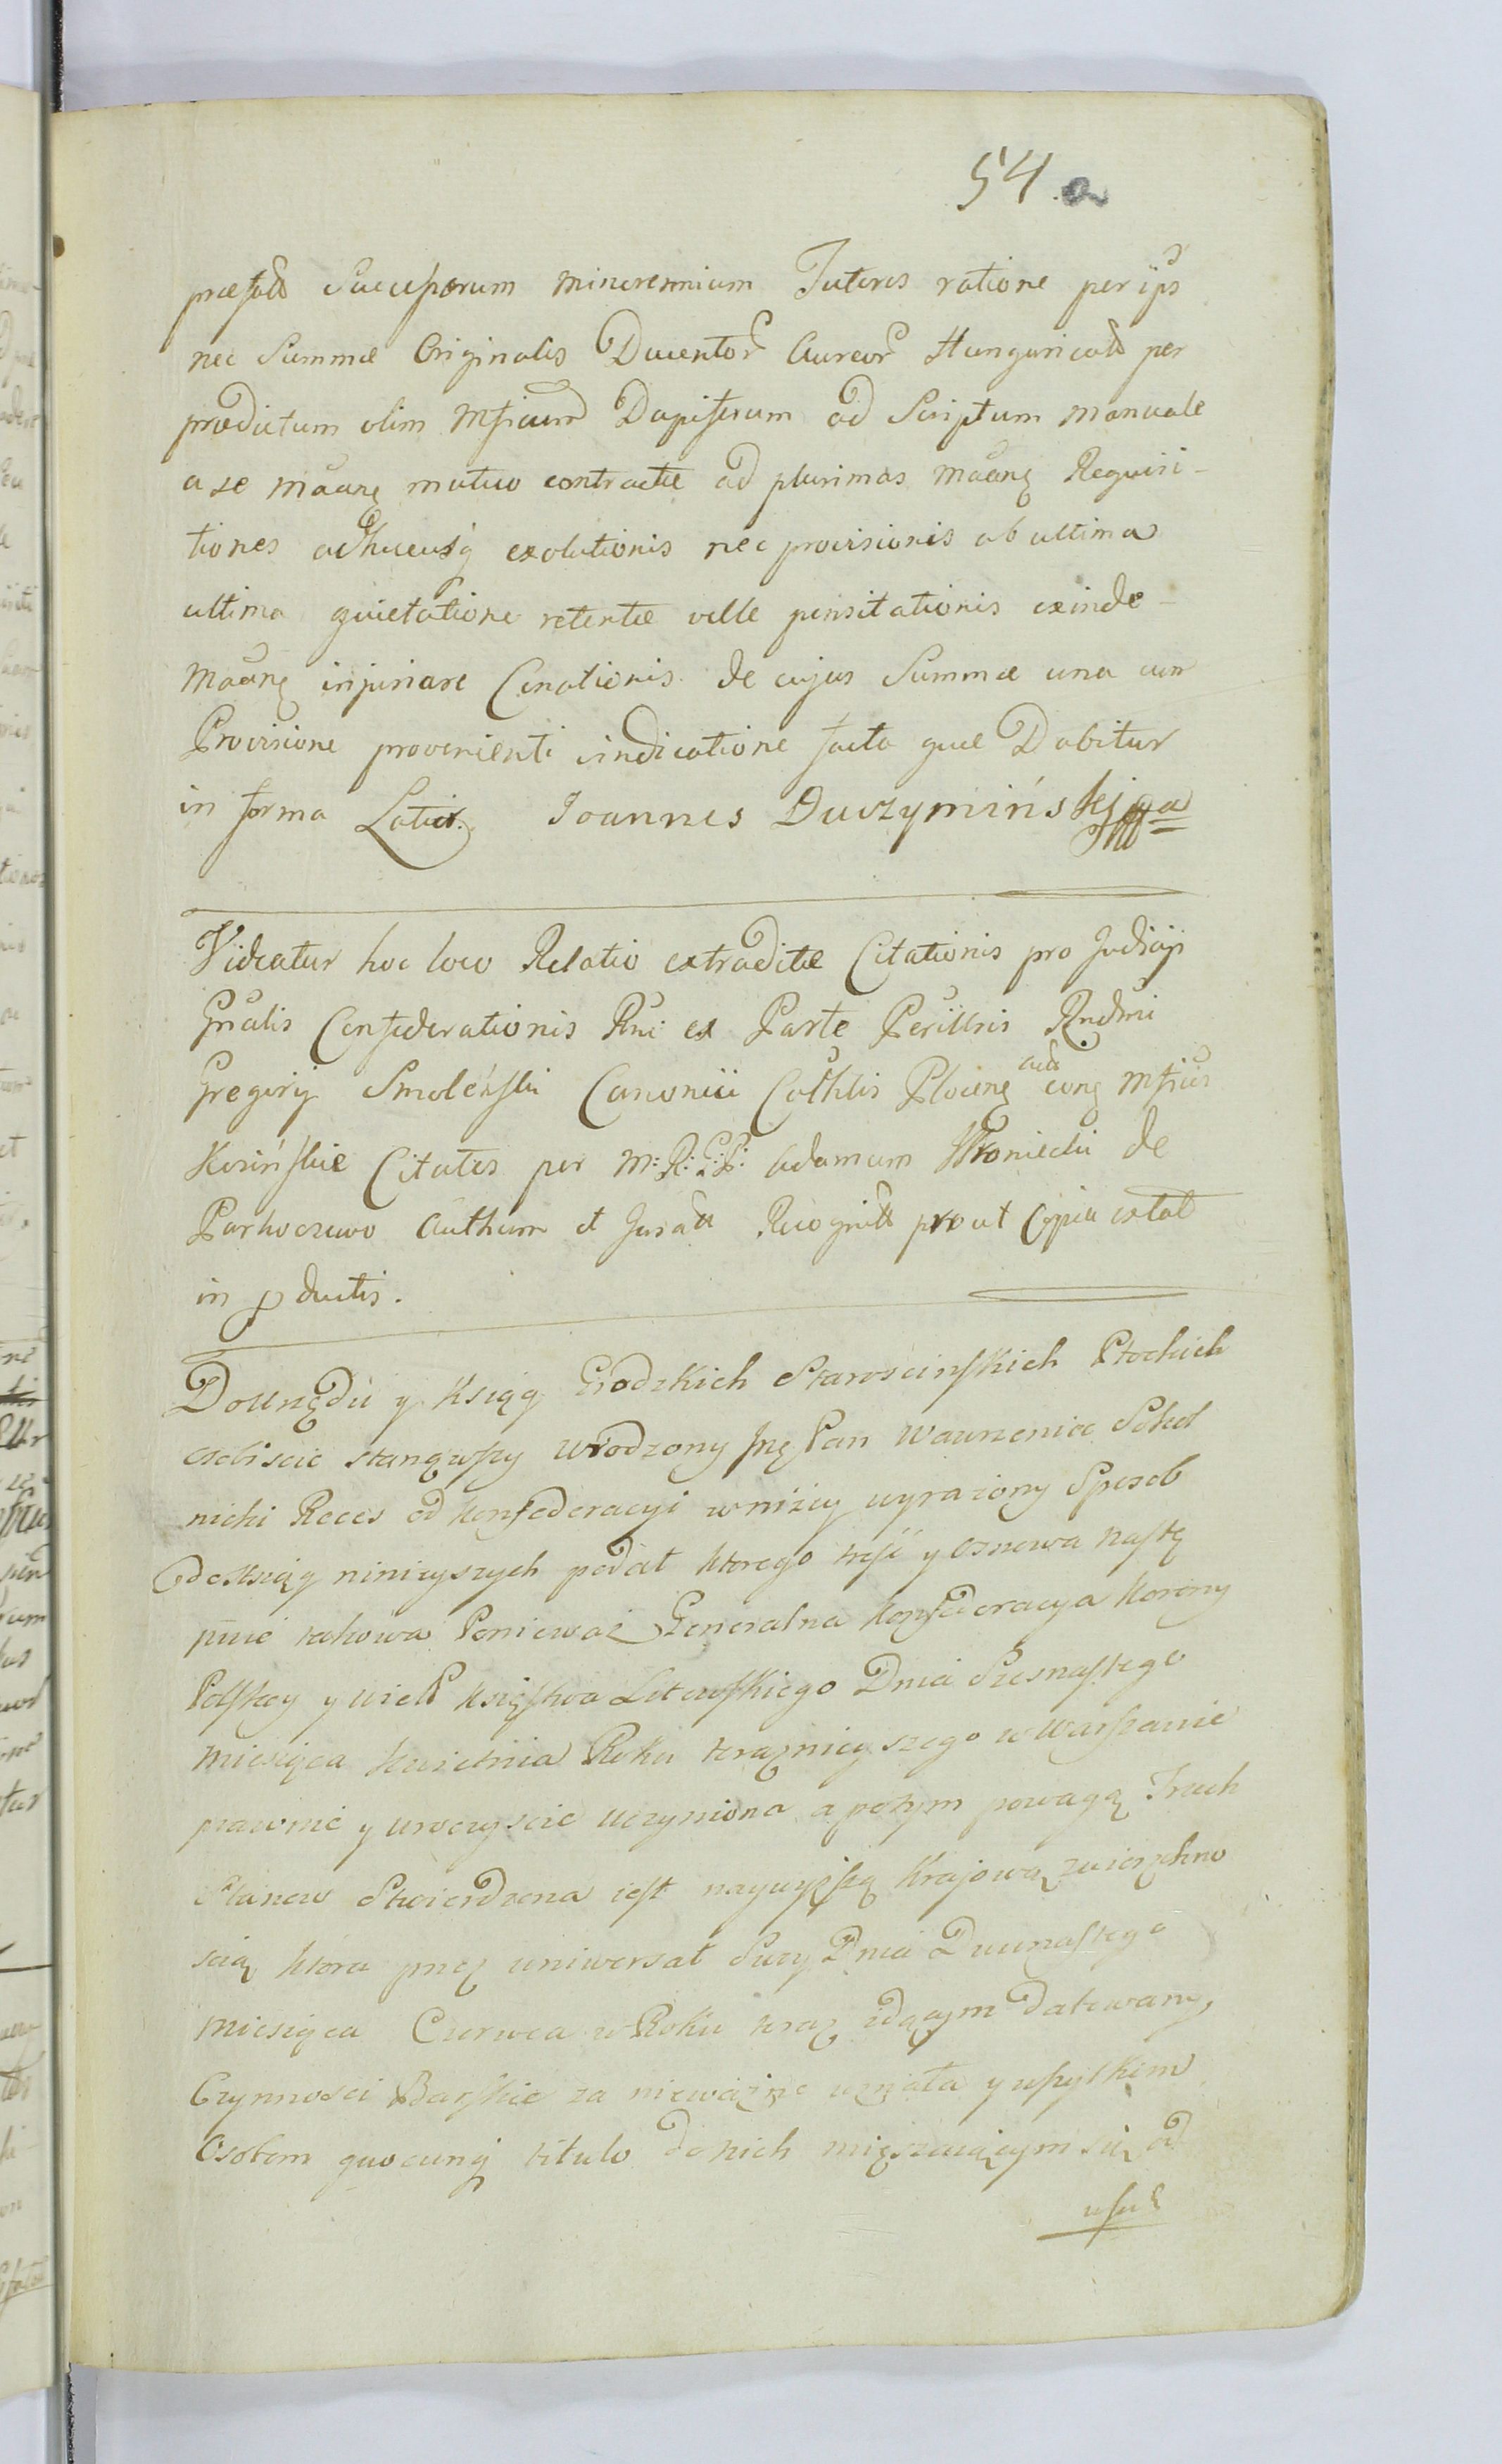 54 a
præfato Successorum minorennium Tutores ratione per ips
nec Summæ Originalis Ducentor Aureor Hungaricalo per
prædictum olim Mficum Dapiferum ad Scriptum manuale
a se máanę mutuo contractæ ad plurimas máanę Requisi-
tiones adhucusq exolutionis nec provisionis ab ultima
ultima quietatione retentæ velle pensitationis exinde
máanę injuriare Conationis de cujus Summæ una cum
Provisione provenienti vindicatione facta quæ Dabitur
in forma Latior. Joannes Duczyminski
Videatur hoc loco Relatio extraditæ Citationis pro Judicÿ
Gnalis Confederationis Rni ex Parte Perillris Rndmi
Gregorij Smoleński Canonici Cathlis Plocenę cong Mficos
Kosińskie Citatos per M: R: G: P: Adamum Wroniecki de
Parkoczewo Authum et Juratt Recognitt prout Copia extat
in productis.
Do Urzędu y Ksiąg Grodzkich Starościnskich Płockich
osobiscie stanąwszy Urodzony Jmę Pan Wawrzeniec Sokol
nicki Reces od konfederacyi w niżey wyrażony Sposob
do Ksiąg ninieyszych podał ktorego treść y Osnowa nastę
puie takowa Ponieważ Generalna konfederacya Korony
Polskiey y Wielk Księstwa Litewskiego Dnia Szesnastego
Miesiąca kwietnia Roku teraznieyszego w Warszawie
prawnie y uroczyscie uczyniona a potym powagą Trzech
Stanow Stwierdzona iest naywyższą Krajową zwierzchno
scią ktora przez uniwersał Swoy Dnia Dwunastego
Miesiąca Czerwca w Roku teraz idącym datowany,
Czynnosci Barskie za nieważne uznała y wszystkim
Osobom quocunq titulo do nich mięszaiącym się od